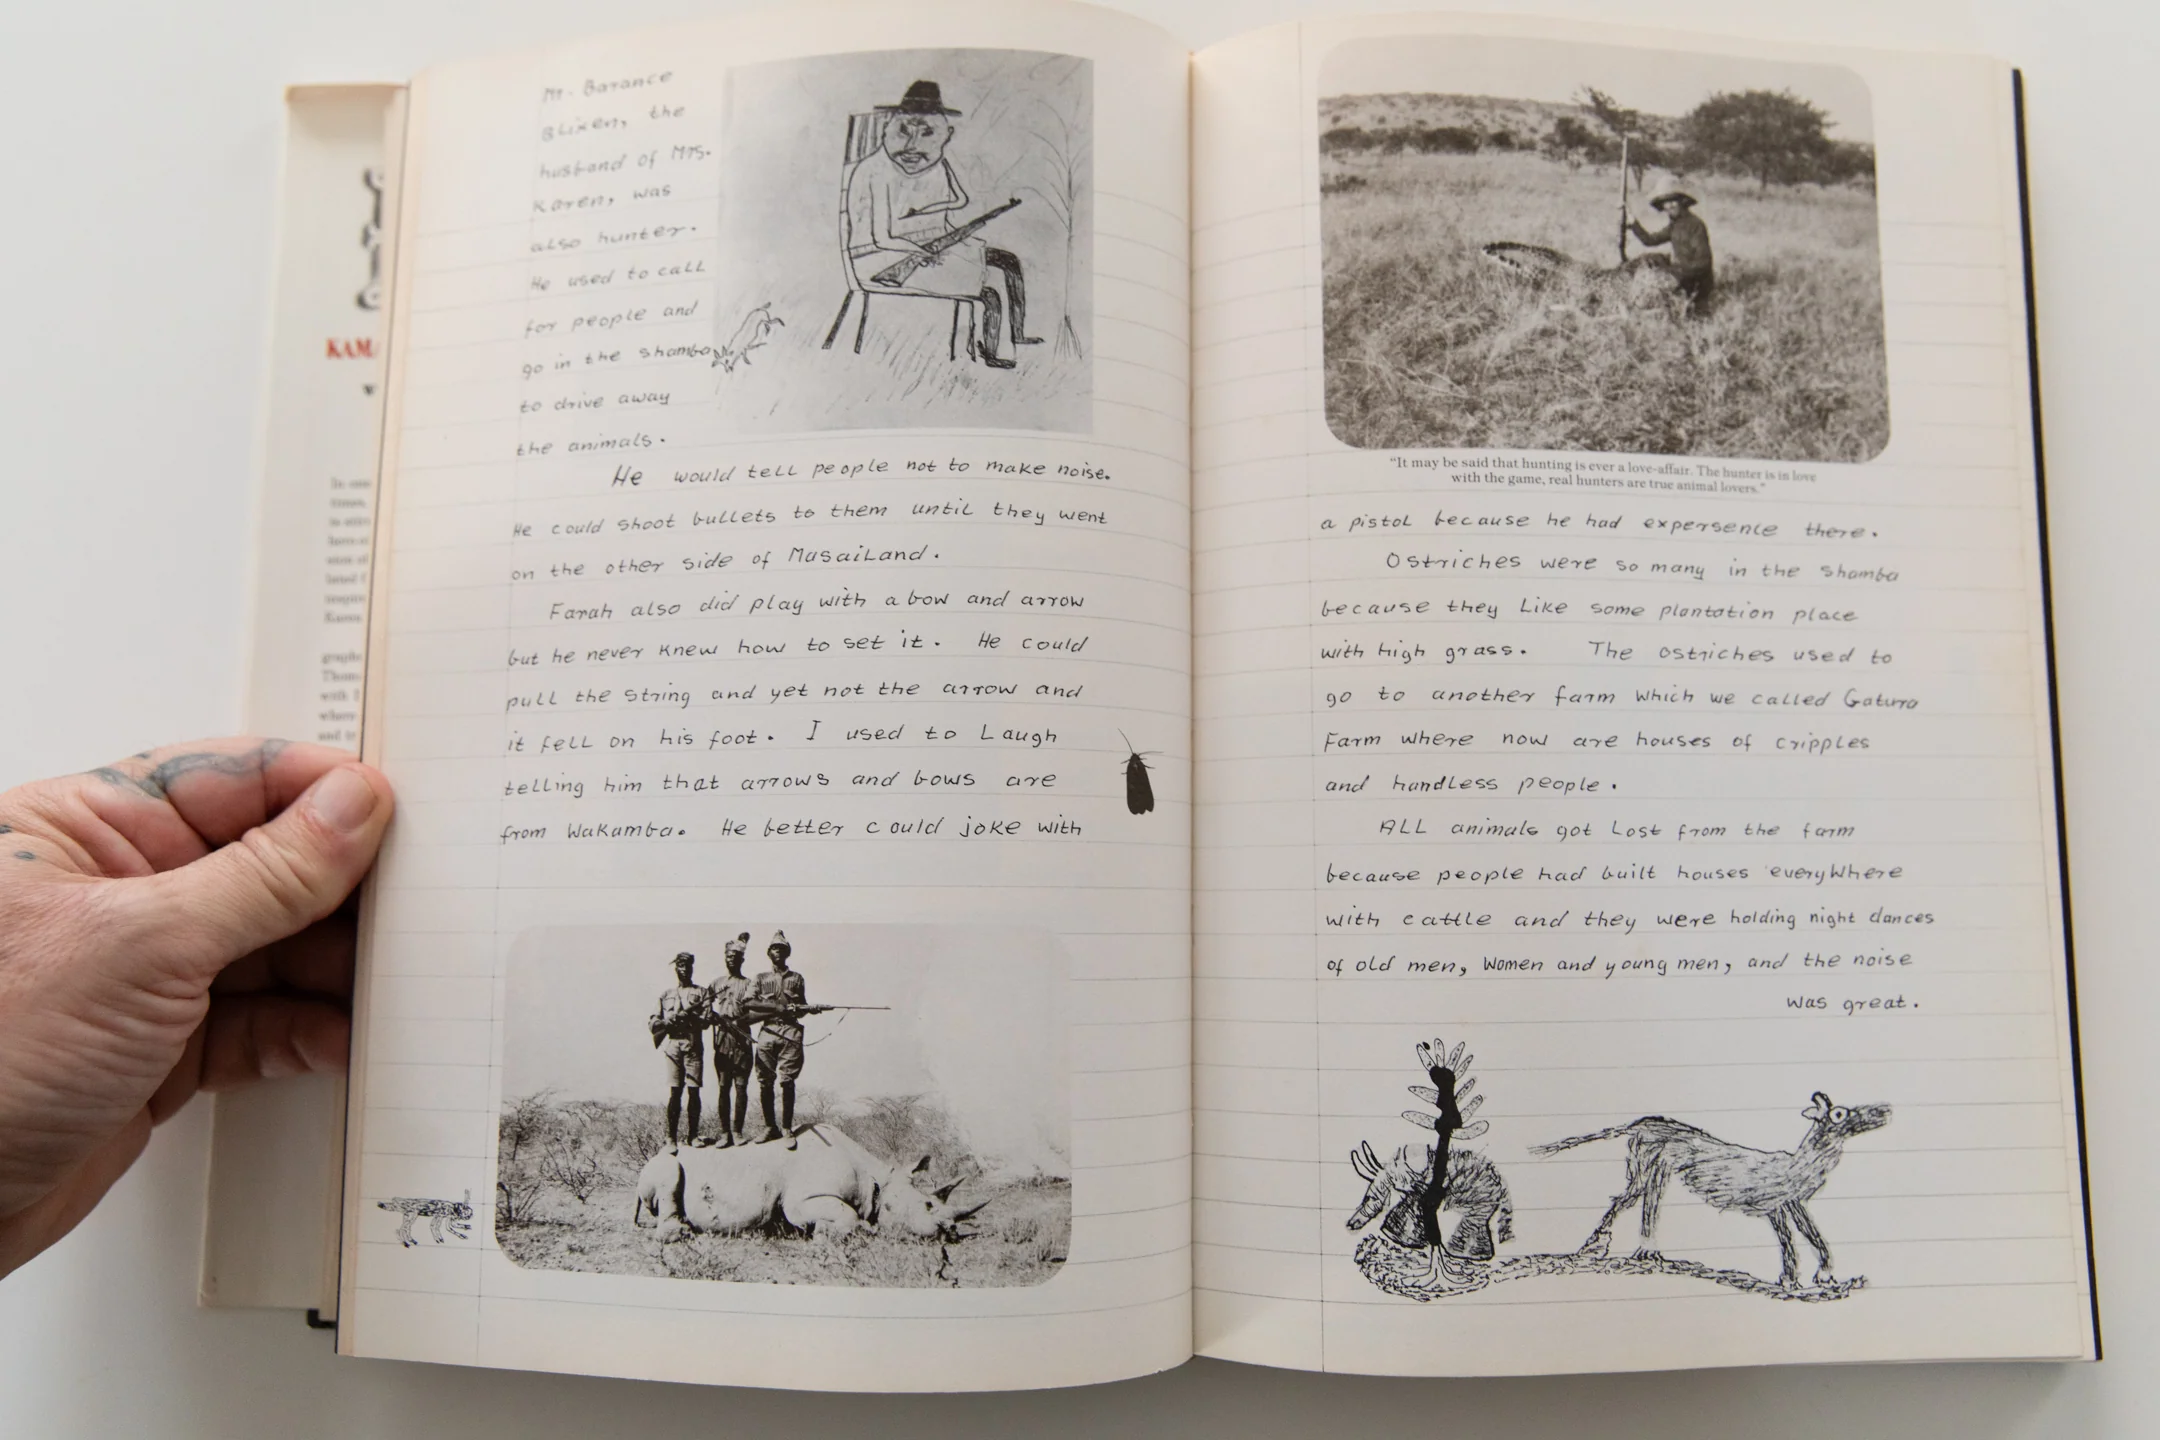 KAMA
In one
times,
graphs
Thom
with I
where
and te
Mr. Barance
Blixen, the
husband of Mrs.
Karen, was
also hunter.
He used to call
for people and
go in the shamba
to drive away
the animals.
He would tell people not to make noise.
He could shoot bullets to them until they went
on the other side of MasaiLand.
Farah also did play with a bow and arrow
but he never knew how to set it. He could
pull the string and yet not the arrow and
it fell on his foot. I used to Laugh
telling him that arrows and bows are
from Wakamba. He better could joke with
"It may be said that hunting is ever a love-affair. The hunter is in love
with the game, real hunters are true animal lovers."
a pistol because he had expersence there.
Ostriches were so many in the shamba
because they Like some plantation place
with high grass. The ostriches used to
go to another farm which we called Gatura
Farm where now are houses of cripples
and handless people.
ALL animals got Lost from the farm
because people had built houses everyWhere
with cattle and they were holding night dances
of old men, Women and young men, and the noise
was great.